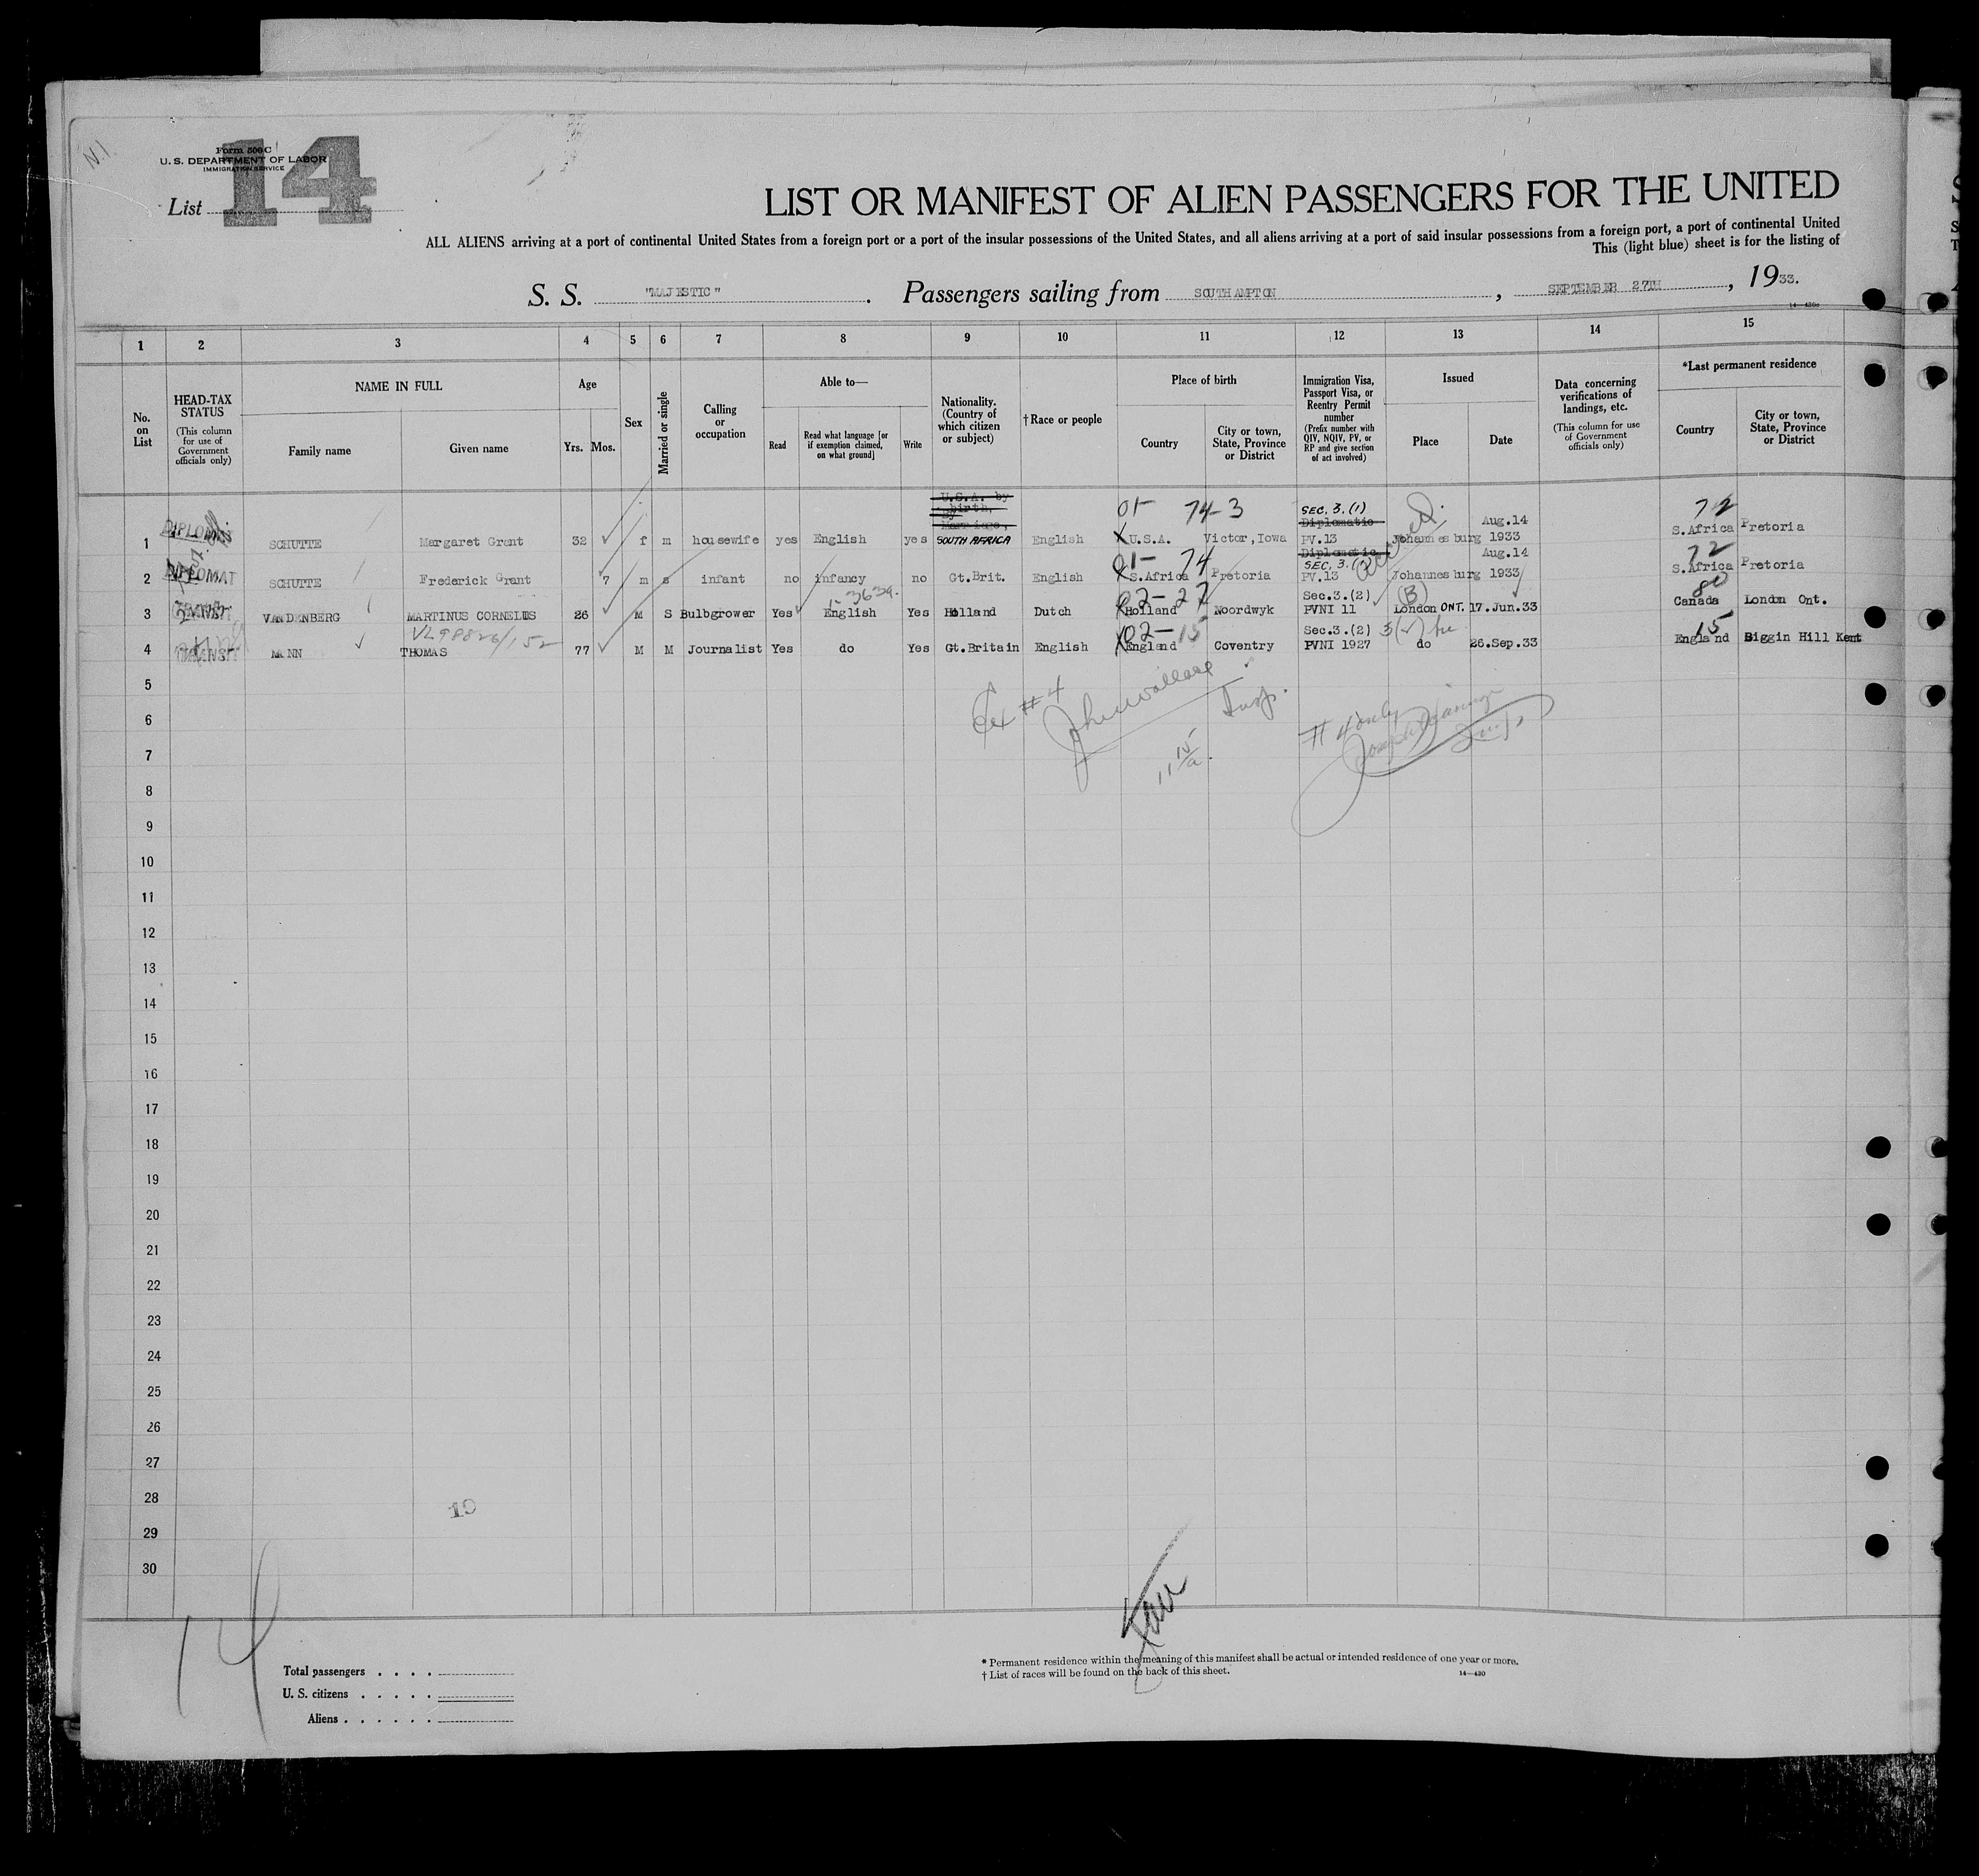 14
Form 500 C
U. S. DEPARTMENT OF LABOR
IMMIGRATION SERVICE
List
LIST OR MANIFEST OF ALIEN PASSENGERS FOR THE UNITED
ALL ALIENS arriving at a port of continental United States from a foreign port or a port of the insular possessions of the United States, and all aliens arriving at a port of said insular possessions from a foreign port, a port of continental United
This (light blue) sheet is for the listing of
S. S. "MAJESTIC". Passengers sailing from SOUTHAMPTON, SEPTEMBER 27TH, 1933.
14—430c
1 2 3 4 5 6 7 8 9 10 11 12 13 14 15
No. on List
HEAD-TAX STATUS
(This column for use of Government officials only)
NAME IN FULL
Family name
Given name
Age
Yrs. Mos.
Sex
Married or single
Calling or occupation
Able to—
Read
Read what language [or if exemption claimed, on what ground]
Write
Nationality. (Country of which citizen or subject)
† Race or people
Place of birth
Country
City or town, State, Province or District
Immigration Visa, Passport Visa, or Reentry Permit number
(Prefix number with QIV, NQIV, PV, or RP and give section of act involved)
Issued
Place
Date
Data concerning verifications of landings, etc.
(This column for use of Government officials only)
*Last permanent residence
Country
City or town, State, Province or District
U.S.A. by
birth,
By
Marriage,
01- 74-3 SEC. 3. (1) 72
Diplomatic Aug.14
1 DIPLOMAT SCHUTTE Margaret Grant 32 f m housewife yes English yes SOUTH AFRICA English X U.S.A. Victor, Iowa PV.13 Johannesburg 1933 S.Africa Pretoria
01- 74 Diplomatic SEC. 3. Aug.14 72
2 DIPLOMAT SCHUTTE Frederick Grant 7 m s infant no infancy no Gt.Brit. English X S.Africa Pretoria PV.13 Johannesburg 1933 S.Africa Pretoria
3639. 02-27 Sec.3.(2) (B) 80
3 VAN DENBERG MARTINUS CORNELUS 26 M S Bulbgrower Yes English Yes Holland Dutch X Holland Noordwyk PVNI 11 London ONT. 17.Jun.33 Canada London Ont.
02-15 Sec.3.(2) 15
4 TRANSIT MANN THOMAS 77 M M Journalist Yes do Yes Gt.Britain English X England Coventry PVNI 1927 do 26.Sep.33 England Biggin Hill Kent
5
Ex #4 John Wallace Insp.
6
#4 only
7
8
9
10
11
12
13
14
15
16
17
18
19
20
21
22
23
24
25
26
27
28
19
29
30
14
Total passengers . . . .
U. S. citizens . . . . .
Aliens . . . . . .
* Permanent residence within the meaning of this manifest shall be actual or intended residence of one year or more.
† List of races will be found on the back of this sheet.
14—430